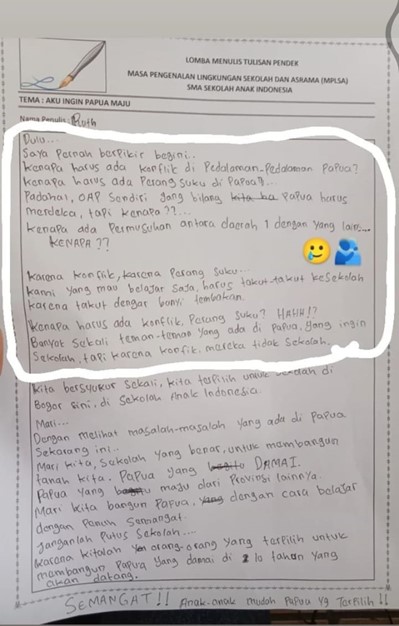 LOMBA MENULIS TULISAN PENDEK
MASA PENGENALAN LINGKUNGAN SEKOLAH DAN ASRAMA (MPLSA)
SMA SEKOLAH ANAK INDONESIA
TEMA : AKU INGIN PAPUA MAJU
Nama Penulis : Ruth
Dulu...
Saya Pernah berpikir begini..
Kenapa harus ada konflik di Pedalaman-Pedalaman Papua?
Kenapa harus ada Perang suku di Papua?.
Padahal, OAP Sendiri yang bilang kita ha Papua harus
merdeka, tapi kenapa ??...
Kenapa ada Permusuhan antara daerah 1 dengan yang lain....
KENAPA ??
Karena konflik, karena Perang suku...
kami yang mau belajar Saja, harus takut-takut kesekolah
karena takut dengar bunyi tembakan.
Kenapa harus ada konflik, Perang suku? HAHH!?
Banyak Sekali teman-teman yang ada di Papua, yang ingin
Sekolah, tapi karena konfik, mereka tidak Sekolah.
Kita bersyukur Sekali, kita terpilih untuk sekolah di
Bogor Sini, di Sekolah Anak Indonesia.
Mari...
Dengan melihat masalah-masalah yang ada di Papua
Sekarang ini..
Mari kita, Sekolah yang benar, untuk membangun
tanah kita. Papua yang DAMAI.
Papua yang maju dari Provinsi lainnya.
Mari kita bangun Papua, yang dengan cara belajar
dengan Penuh Semangat.
Janganlah Putus Sekolah...
Karena kitalah orang-orang yang terpilih untuk
membangun Papua yang damai di 10 tahun yang
akan datang.
SEMANGAT!! Anak-anak mudah Papua yg Terpilih!!